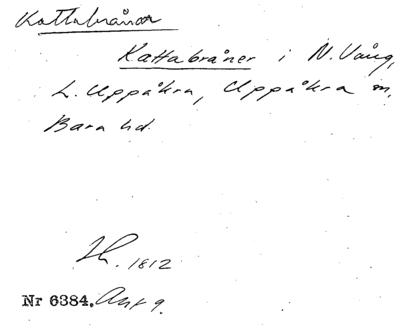 Kattabrånar
Kattabråner i N. Vång,
L. Uppåkra, Uppåkra sn,
Bara hd.
1812
Nr 6384. Akt 9.